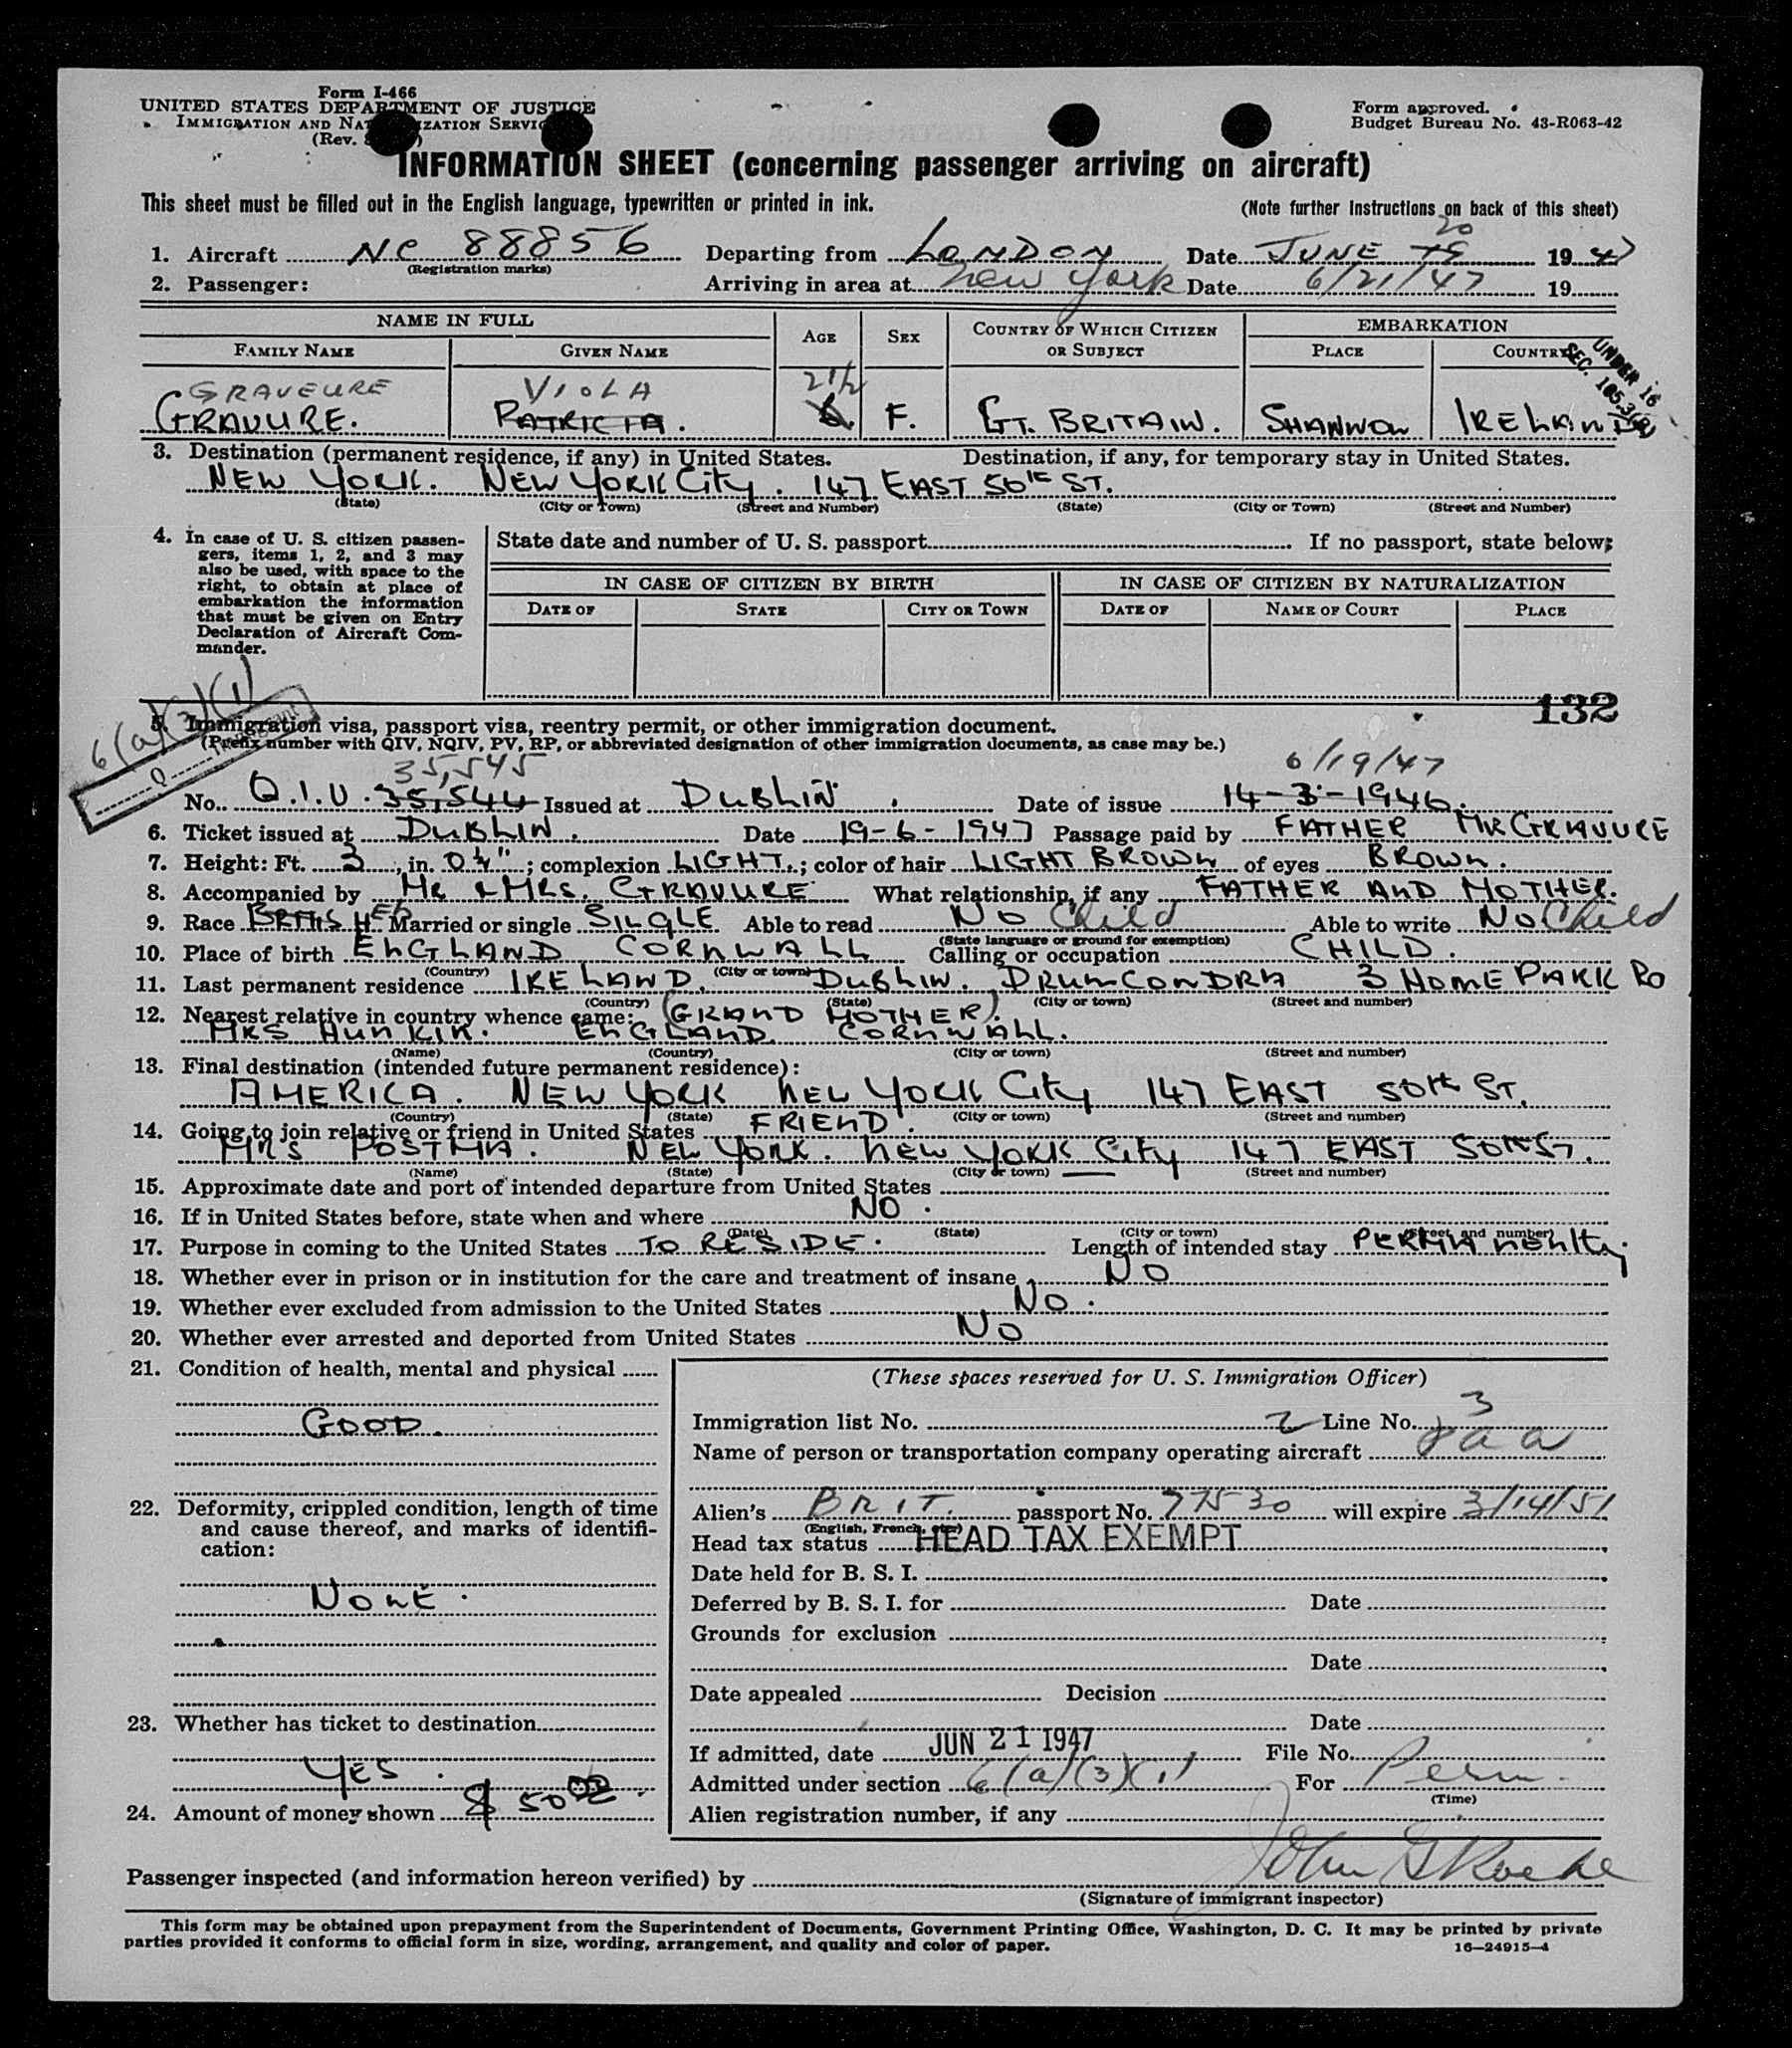 Form I-466
UNITED STATES DEPARTMENT OF JUSTICE
IMMIGRATION AND NATURALIZATION SERVICE
(Rev.
Form approved.
Budget Bureau No. 43-R063-42
INFORMATION SHEET (concerning passenger arriving on aircraft)
This sheet must be filled out in the English language, typewritten or printed in ink.
(Note further instructions on back of this sheet)
20
1. Aircraft NC 88856 Departing from LONDON Date JUNE 19 1947
(Registration marks)
2. Passenger: Arriving in area at New York Date 6/21/47 19
NAME IN FULL
AGE SEX COUNTRY OF WHICH CITIZEN OR SUBJECT EMBARKATION
FAMILY NAME GIVEN NAME PLACE COUNTRY
UNDER 16
SEC. 105.3
GRAVEURE VIOLA 2 1/2
GRAVURE. PATRICIA. F. GT. BRITAIN. SHANNON IRELAND
3. Destination (permanent residence, if any) in United States. Destination, if any, for temporary stay in United States.
NEW YORK. NEW YORK City. 147 EAST 50TH ST.
(State) (City or Town) (Street and Number) (State) (City or Town) (Street and Number)
4. In case of U. S. citizen passen-
gers, items 1, 2, and 3 may
also be used, with space to the
right, to obtain at place of
embarkation the information
that must be given on Entry
Declaration of Aircraft Com-
mander.
State date and number of U. S. passport If no passport, state below:
IN CASE OF CITIZEN BY BIRTH IN CASE OF CITIZEN BY NATURALIZATION
DATE OF STATE CITY OR TOWN DATE OF NAME OF COURT PLACE
132
6(a)(3)(1)
Q Immigrant
5. Immigration visa, passport visa, reentry permit, or other immigration document.
(Prefix number with QIV, NQIV, PV, RP, or abbreviated designation of other immigration documents, as case may be.)
35,545 6/19/47
No. Q.I.V. 35,544 Issued at DUBLIN. Date of issue 14-3-1946.
6. Ticket issued at DUBLIN. Date 19-6-1947 Passage paid by FATHER MR GRAVURE
7. Height: Ft. 3, in. 0 1/4"; complexion LIGHT.; color of hair LIGHT BROWN of eyes BROWN.
8. Accompanied by MR & MRS. GRAVURE. What relationship, if any FATHER AND MOTHER.
9. Race BRITISH Married or single SINGLE Able to read NO Child Able to write NO Child
(State language or ground for exemption)
10. Place of birth ENGLAND CORNWALL Calling or occupation CHILD.
(Country) (City or town)
11. Last permanent residence IRELAND. DUBLIN. DRUMCONDRA 3 HOME PARK RD
(Country) (State) (City or town) (Street and number)
12. Nearest relative in country whence came: (GRAND MOTHER).
MRS HUNKIN. ENGLAND. CORNWALL.
(Name) (Country) (City or town) (Street and number)
13. Final destination (intended future permanent residence):
AMERICA. NEW YORK NEW YORK City 147 EAST 50th ST.
(Country) (State) (City or town) (Street and number)
14. Going to join relative or friend in United States FRIEND.
MRS POSTMA. NEW YORK. NEW YORK City 147 EAST 50TH ST.
(Name) (State) (City or town) (Street and number)
15. Approximate date and port of intended departure from United States
16. If in United States before, state when and where NO.
(Date) (State) (City or town) (Street and number)
17. Purpose in coming to the United States TO RESIDE. Length of intended stay PERMANENLTy.
18. Whether ever in prison or in institution for the care and treatment of insane NO
19. Whether ever excluded from admission to the United States NO.
20. Whether ever arrested and deported from United States NO
21. Condition of health, mental and physical
GOOD.
22. Deformity, crippled condition, length of time
and cause thereof, and marks of identifi-
cation:
NONE.
23. Whether has ticket to destination
YES.
24. Amount of money shown $ 50 00.
(These spaces reserved for U. S. Immigration Officer)
Immigration list No. 2 Line No. 3
Name of person or transportation company operating aircraft paa
Alien's BRIT. passport No. 77530 will expire 3/14/51
(English, French, etc.)
Head tax status HEAD TAX EXEMPT
Date held for B. S. I.
Deferred by B. S. I. for Date
Grounds for exclusion
Date
Date appealed Decision
Date
If admitted, date JUN 21 1947 File No.
Admitted under section 6(a)(3)(1) For Perm.
(Time)
Alien registration number, if any
Passenger inspected (and information hereon verified) by John G Roche
(Signature of immigrant inspector)
This form may be obtained upon prepayment from the Superintendent of Documents, Government Printing Office, Washington, D. C. It may be printed by private
parties provided it conforms to official form in size, wording, arrangement, and quality and color of paper.
16—24915-4